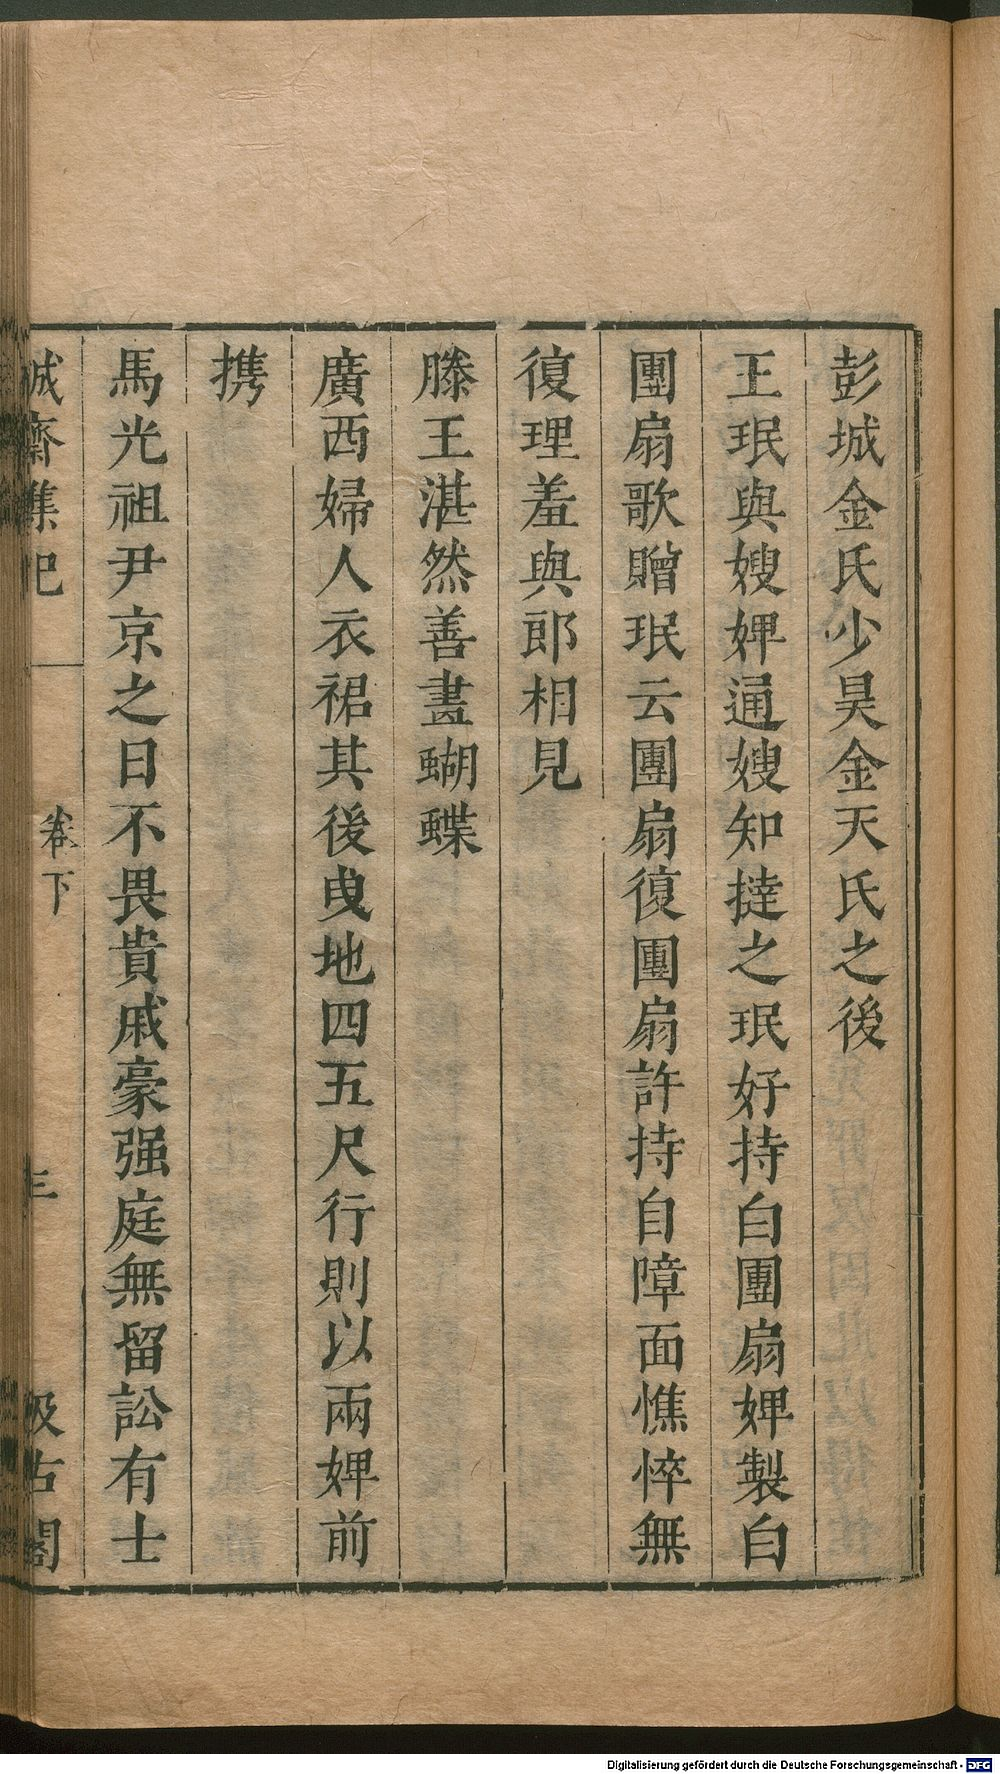 彭城金氏少昊金天氏之後
王珉與嫂婢通嫂知撻之珉好持白團扇婢製白
團扇歌贈珉云團扇復團扇許持自障面憔悴無
復理羞與郎相見
滕王湛然善畫蝴蝶
廣西婦人衣裙其後曳地四五尺行則以兩婢前
携
馬光祖尹京之日不畏貴戚豪强庭無留訟有士
誠齋集記
卷下
三
汲古閣
Digitalisierung gefördert durch die Deutsche Forschungsgemeinschaft - DFG